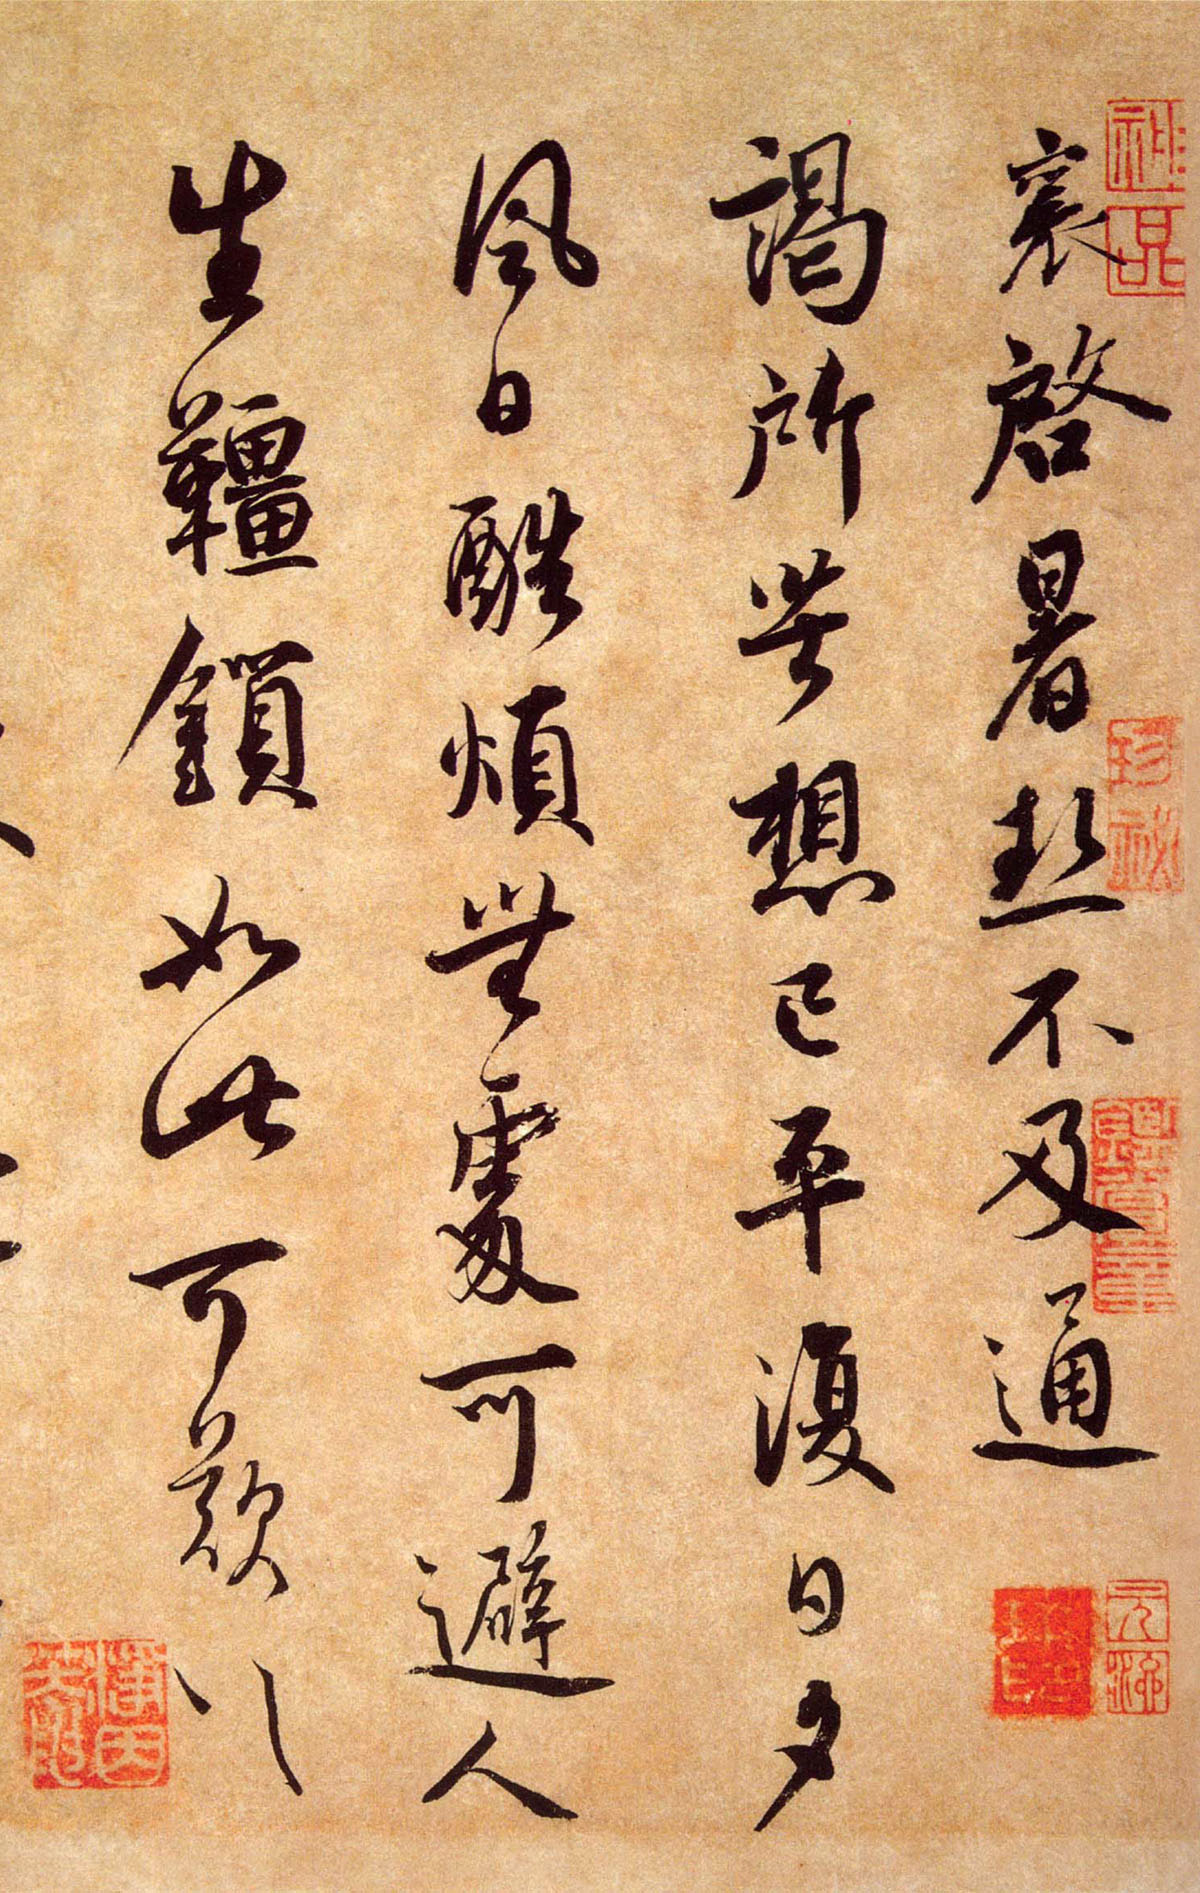 襄啓暑熱不及通
謁所苦想已平復日夕
風日酷煩無處可避人
生韁鎖如此可歎